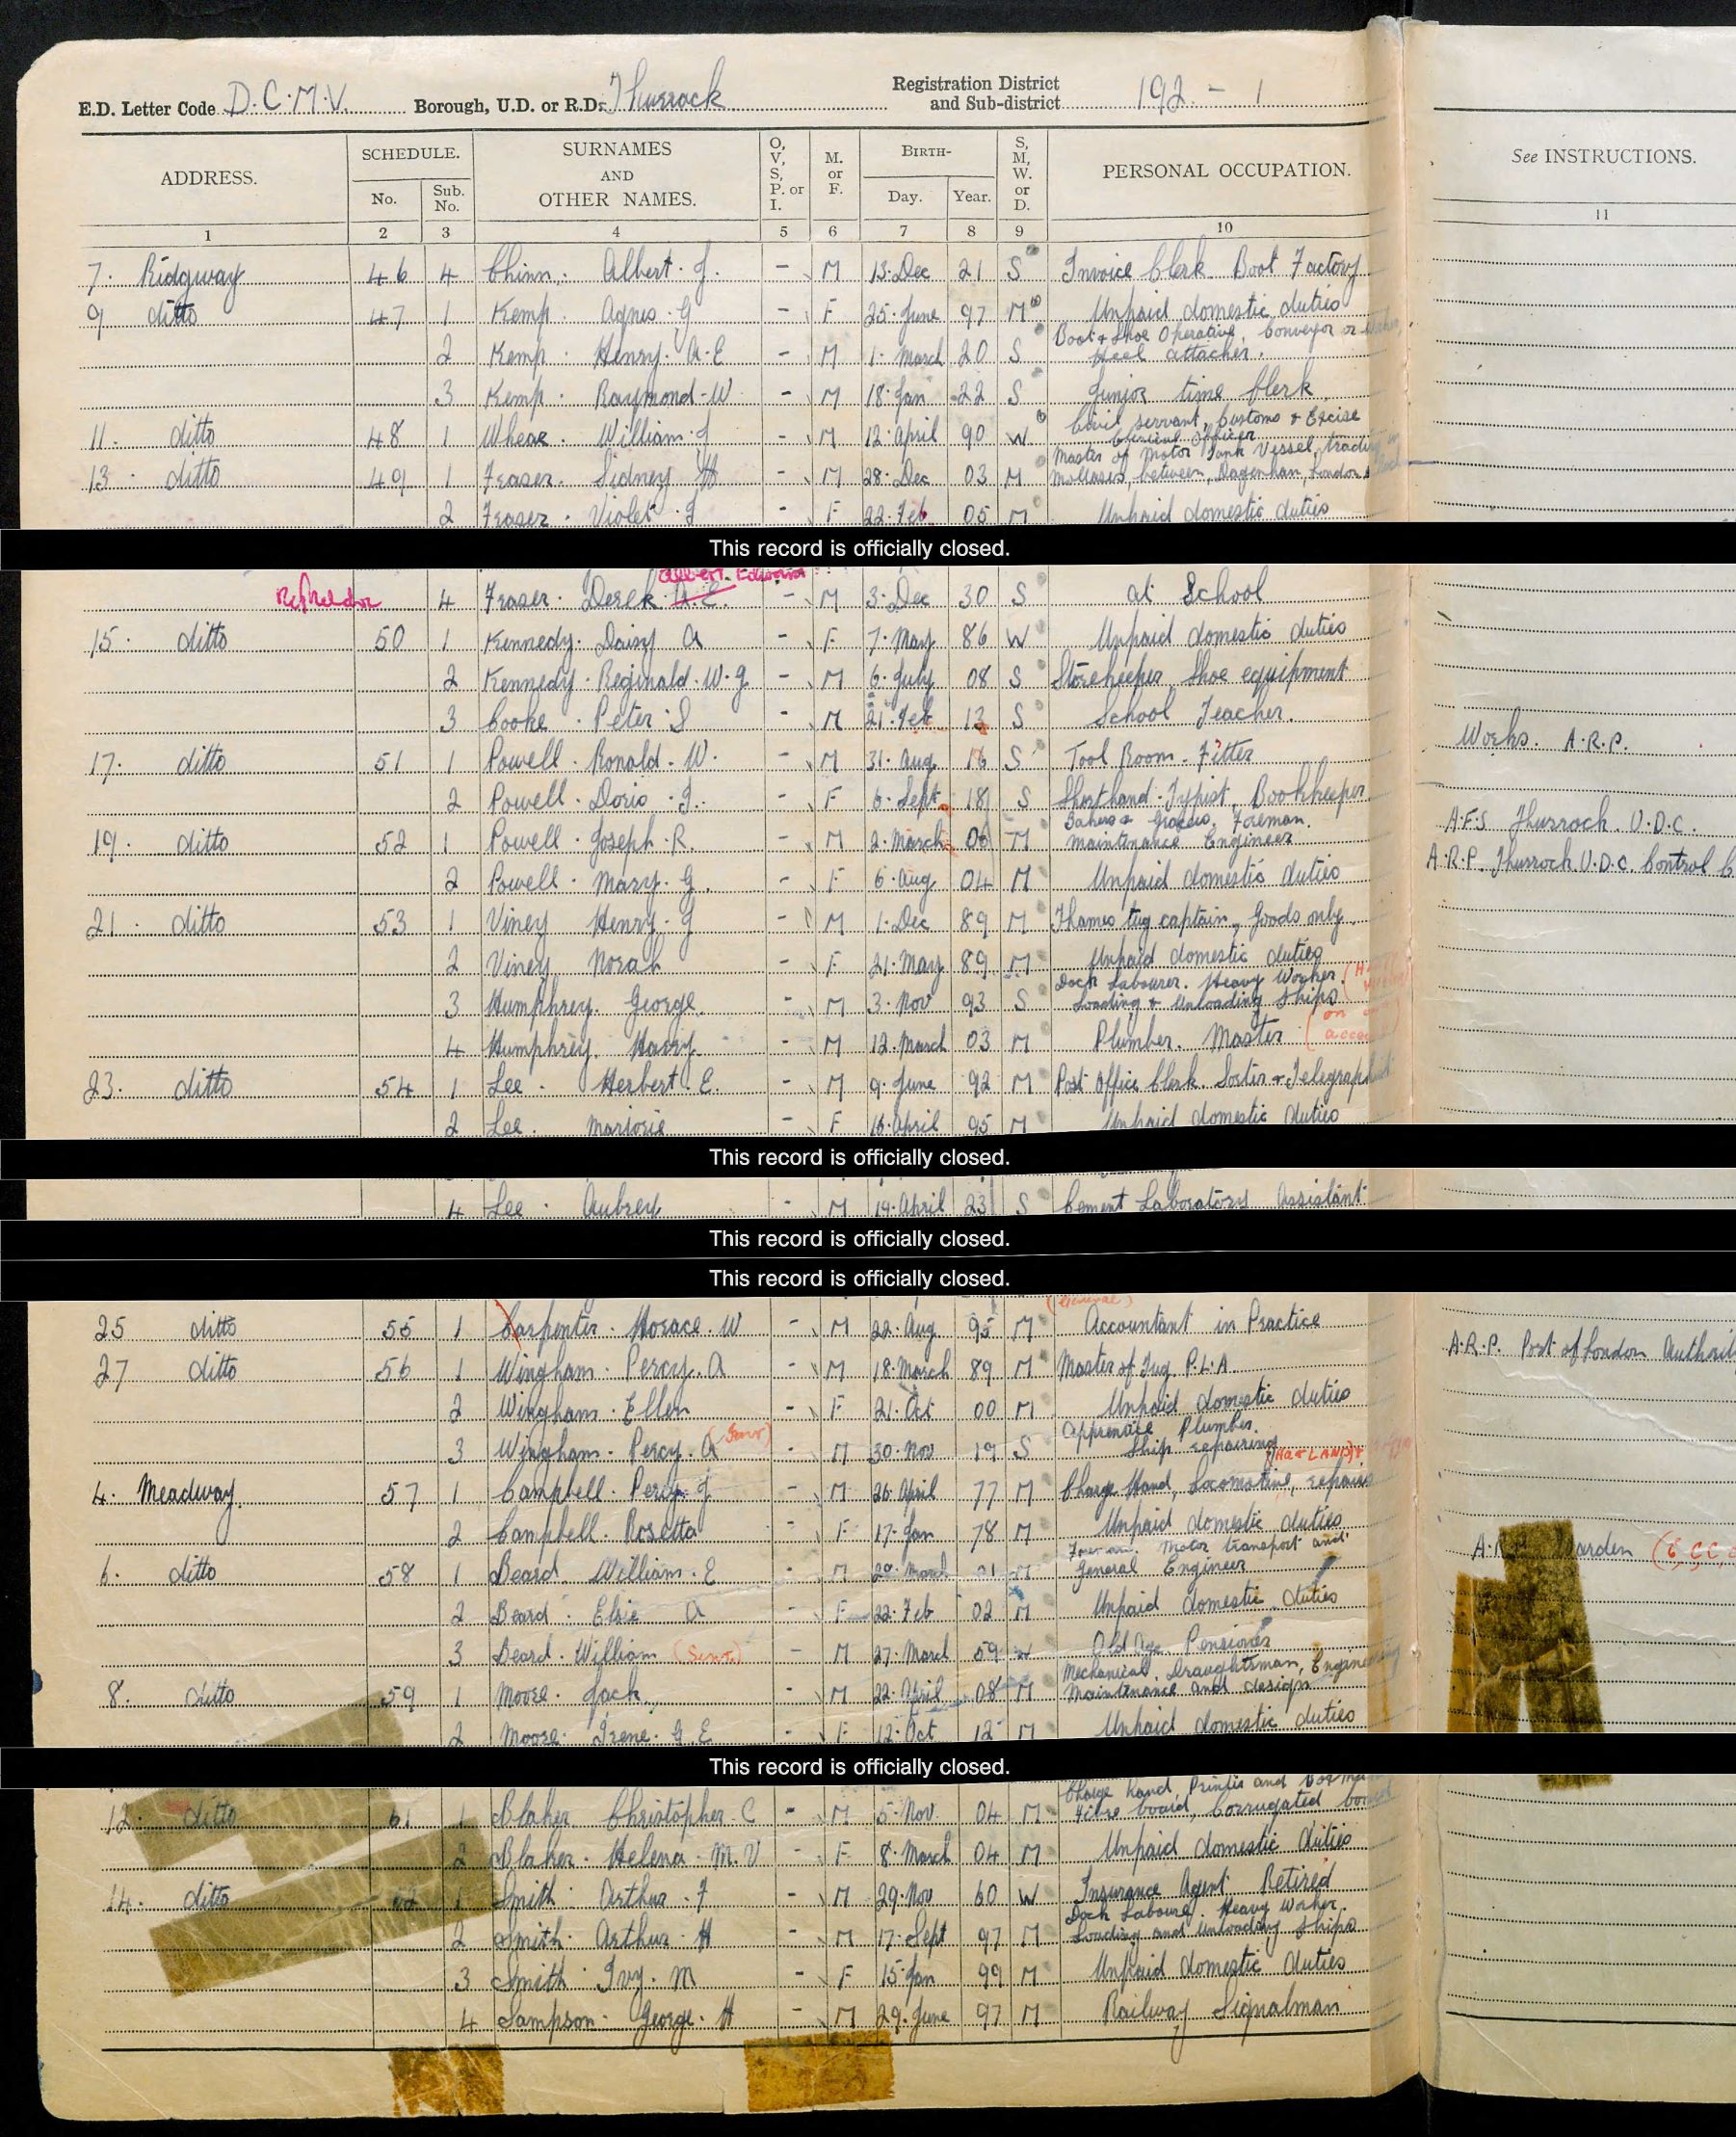 E.D. Letter Code D.C.M.V. Borough, U.D. or R.D. Thurrock Registration District and Sub-district 192 - 1
ADDRESS. SCHEDULE. No. Sub. No. SURNAMES AND OTHER NAMES. O, V, S, P. or I. M. or F. BIRTH- Day. Year. S, M, W. or D. PERSONAL OCCUPATION. See INSTRUCTIONS.
1 2 3 4 5 6 7 8 9 10 11
7. Ridgway 46 4 Chinn. Albert. J. - M 13. Dec 21 S Invoice Clerk Boot Factory
9 ditto 47 1 Kemp. Agnes. G - F 25. June 97 M Unpaid domestic duties
2 Kemp. Henry. A. E - M 1. March 20 S Boot & Shoe Operative, Conveyor or Heel attacher.
3 Kemp. Raymond. W - M 18. Jan 22 S Junior time Clerk
11. ditto 48 1 Whear. William. J - M 12. April 90 W Civil servant, Customs & Excise Clerical Officer
13. ditto 49 1 Fraser. Sidney H - M 28. Dec 03 M Master of Motor Tank Vessel, trading in Mollases, between, Dagenham, London &
2 Fraser. Violet. J - F 22. Feb. 05 M Unpaid domestic duties
This record is officially closed.
Albert. Edward
4 Fraser. Derek. A. E. - M 3. Dec 30 S at School
15. ditto 50 1 Kennedy. Daisy A - F 7. May 86 W Unpaid domestic duties
2 Kennedy. Reginald. W. G - M 6. July 08 S Storekeeper, Shoe equipment
3 Cooke. Peter. S - M 21. Feb 13 S School Teacher.
17. ditto 51 1 Powell. Ronald. W. - M 31. Aug 16 S Tool Room. Fitter Works. A.R.P.
2 Powell. Doris. J. - F 6. Sept. 18 S Shorthand-Typist, Bookkeeper
19. ditto 52 1 Powell. Joseph. R. - M 2. March 06 M Bakers & Grocers. Foreman. Maintenance Engineer A.F.S Thurrock. U.D.C.
2 Powell. Mary. G. - F 6. Aug 04 M Unpaid domestic duties A.R.P. Thurrock. U.D.C. Control C
21. ditto 53 1 Viney Henry. J - M 1. Dec 89 M Thames tug captain, Goods only
2 Viney Norah - F 21. May 89 M Unpaid domestic duties
3 Humphrey. George. - M 3. Nov 93 S Dock Labourer. Heavy Worker. Loading & Unloading Ships
4 Humphrey. Harry. - M 12. March 03 M Plumber. Master (on own account
23. ditto 54 1 Lee. Herbert. E. - M 9. June 92 M Post Office Clerk. Sorter & Telegraphist
2 Lee. Marjorie - F 16. April 95 M Unpaid domestic duties
This record is officially closed.
4 Lee. Aubrey - M 14. April 23 S Cement Laboratory Assistant
This record is officially closed.
This record is officially closed.
25 ditto 55 1 Carpenter. Horace. W - M 22. Aug 95 M (General) Accountant in Practice
27 ditto 56 1 Wingham. Percy. A - M 18. March 89 M Master of Tug. P.L.A. A.R.P. Port of London Authority
2 Wingham. Ellen - F 21. Oct 00 M Unpaid domestic duties
3 Wingham. Percy. A (Junr) - M 30. Nov 19 S Apprentice Plumber. Ship repairing
4. Meadway. 57 1 Campbell. Percy. J - M 26. April 77 M Charge Hand, Locomotive, repairs
2 Campbell. Rosetta - F 17. Jan 78 M Unpaid domestic duties
6. ditto 58 1 Beard. William. E - M 28. March 01 M Foreman. Motor transport and General Engineer A.R.P. Warden
2 Beard. Elsie A - F 22. Feb 02 M Unpaid domestic duties
3 Beard. William (Senr.) - M 27. March 59 W Old Age Pensioner
8. ditto 59 1 Moore. Jack. - M 22. April 08 M Mechanical. Draughtsman, Engineering Maintenance and design
2 Moore. Irene. G. E - F 12. Oct 12 M Unpaid domestic duties
This record is officially closed.
12. ditto 61 1 Blaker Christopher. C - M 5. Nov. 04 M Charge hand, Printer and fibre board, Corrugated board
2 Blaker. Helena. M. V - F 8. March 04 M Unpaid domestic duties
14. ditto 1 Smith. Arthur. F - M 29. Nov 60 W Insurance Agent Retired
2 Smith. Arthur. H - M 17. Sept 97 M Dock Labourer. Heavy Worker. Loading and Unloading Ships
3 Smith. Ivy. M - F 15. Jan 99 M Unpaid domestic duties
4 Sampson. George. H - M 29. June 97 M Railway Signalman